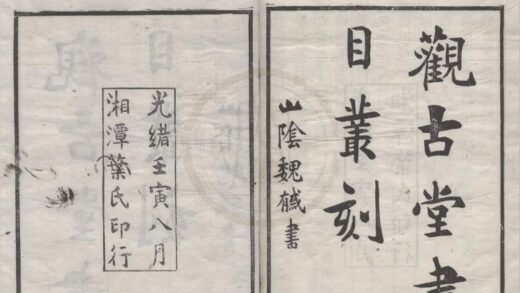 觀古堂書
目叢刻
山陰魏俴書
光緒壬寅八月
湘潭葉氏印行